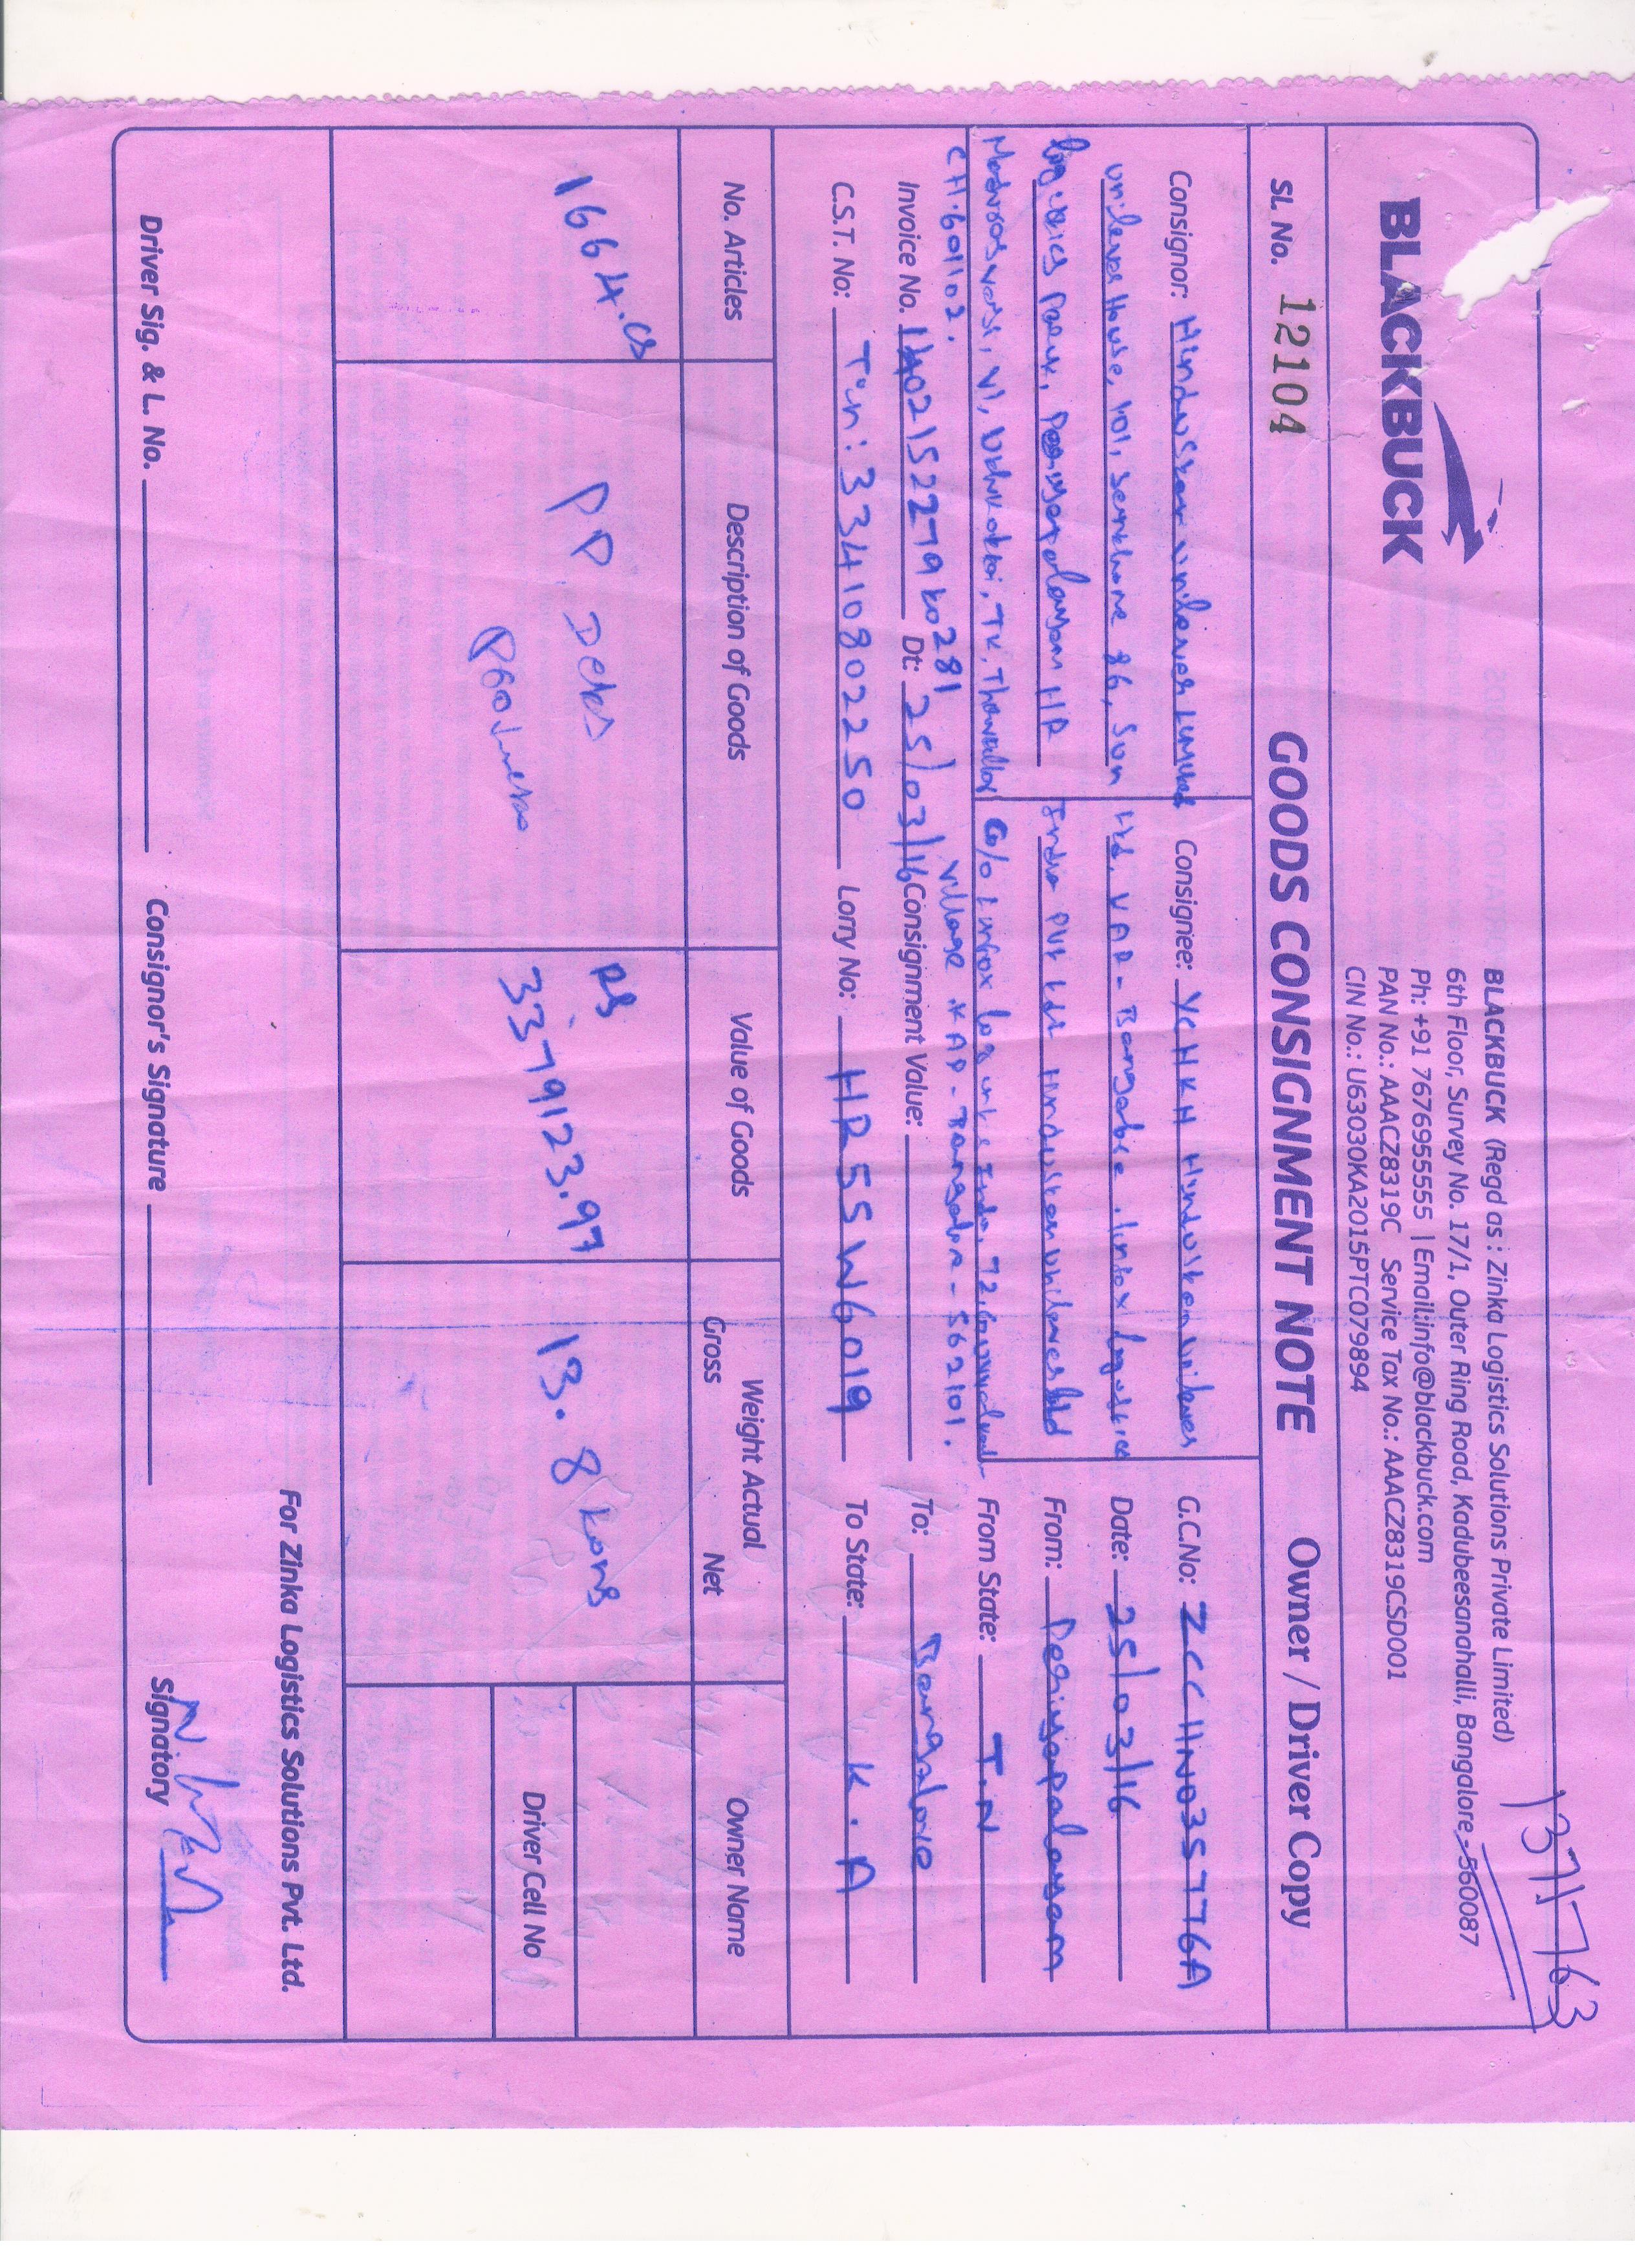 137763
BLACKBUCK
BLACKBUCK (Regd as : Zinka Logistics Solutions Private Limited)
6th Floor, Survey No. 17/1, Outer Ring Road, Kadubeesanahalli, Bangalore - 560087
Ph: +91 7676955555 | Email:info@blackbuck.com
PAN No.: AAACZ8319C Service Tax No.: AAACZ8319CSD001
CIN No.: U63030KA2015PTC079894
SL No. 12104 GOODS CONSIGNMENT NOTE Owner / Driver Copy
Consignor: Hindustan unilever Limited
unilever House, 101, Santhome 86, Sun
logistics Park, Periyapalayam HR
Madras, V1, TK,
CH.601102.
Consignee: YCHKH Hindustan unilever
Ltd, VAP - Bangalore. linfox logistics
India Pvt Ltd Hindustan unilever Ltd
C/o Linfox logistics India, 72,
Village KAP - Bangalore - 562101.
G.C.No: ZCC11N035776A
Date: 25/03/16
From: Periyapalayam
From State: T.N
To: Bangalore
To State: K.A
Invoice No. 1402152279 to 281 Dt: 25/03/16 Consignment Value:
C.S.T. No: Tin: 33410802250 Lorry No: HR55W6019
No. Articles Description of Goods Value of Goods Weight Actual Owner Name
Gross Net
1664.cs PP Dets Products Rs 3379123.97 13.8 tons
Driver Cell No
For Zinka Logistics Solutions Pvt. Ltd.
Driver Sig. & L. No. Consignor's Signature Signatory